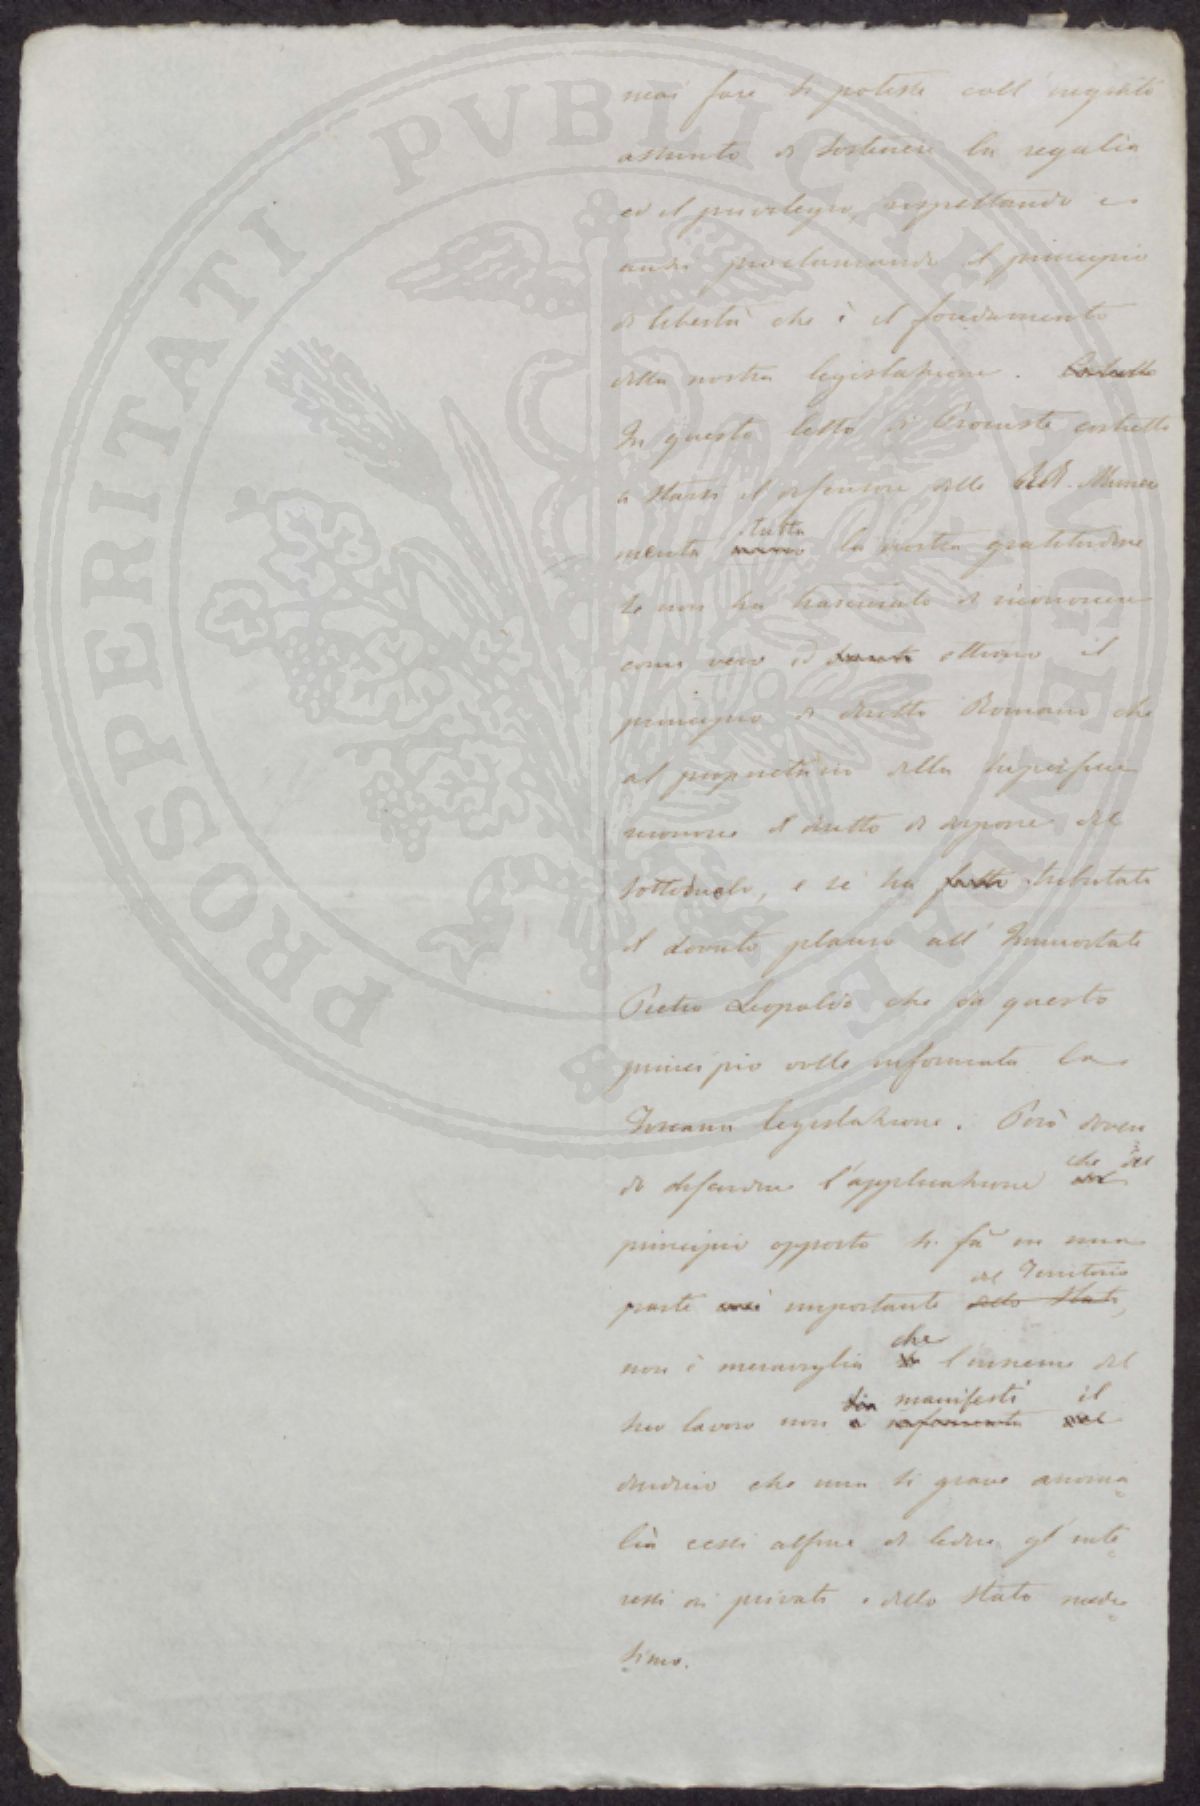 mai fare si potesse coll' ingrato
assunto di sostenere la regalia
ed il privilegio, rispettando e
anzi proclamando il principio
di libertà che è il fondamento
della nostra legislazione.
In questo letto di Procuste costretto
a starsi il difensore delle RR. Miniere
merita tutta la nostra gratitudine
se non ha trascurato di riconoscere
come vero ed ottimo il
principio di diritto Romano che
al proprietario della superficie
riconosce il diritto di disporre del
sottosuolo, e se ha tributato
il dovuto plauso all' Immortale
Pietro Leopoldo che da questo
principio volle informata la
Toscana legislazione. Però doven
do difendere l'applicazione che del
principio opposto si fà in una
parte importante del Territorio,
non è meraviglia che l'insieme del
suo lavoro non manifesti il
desiderio che una sì grave anoma
lia cessi alfine di ledere gl' inte
ressi dei privati e dello Stato mede
simo.
PROSPERITATI PVBLICAE AVGENDAE